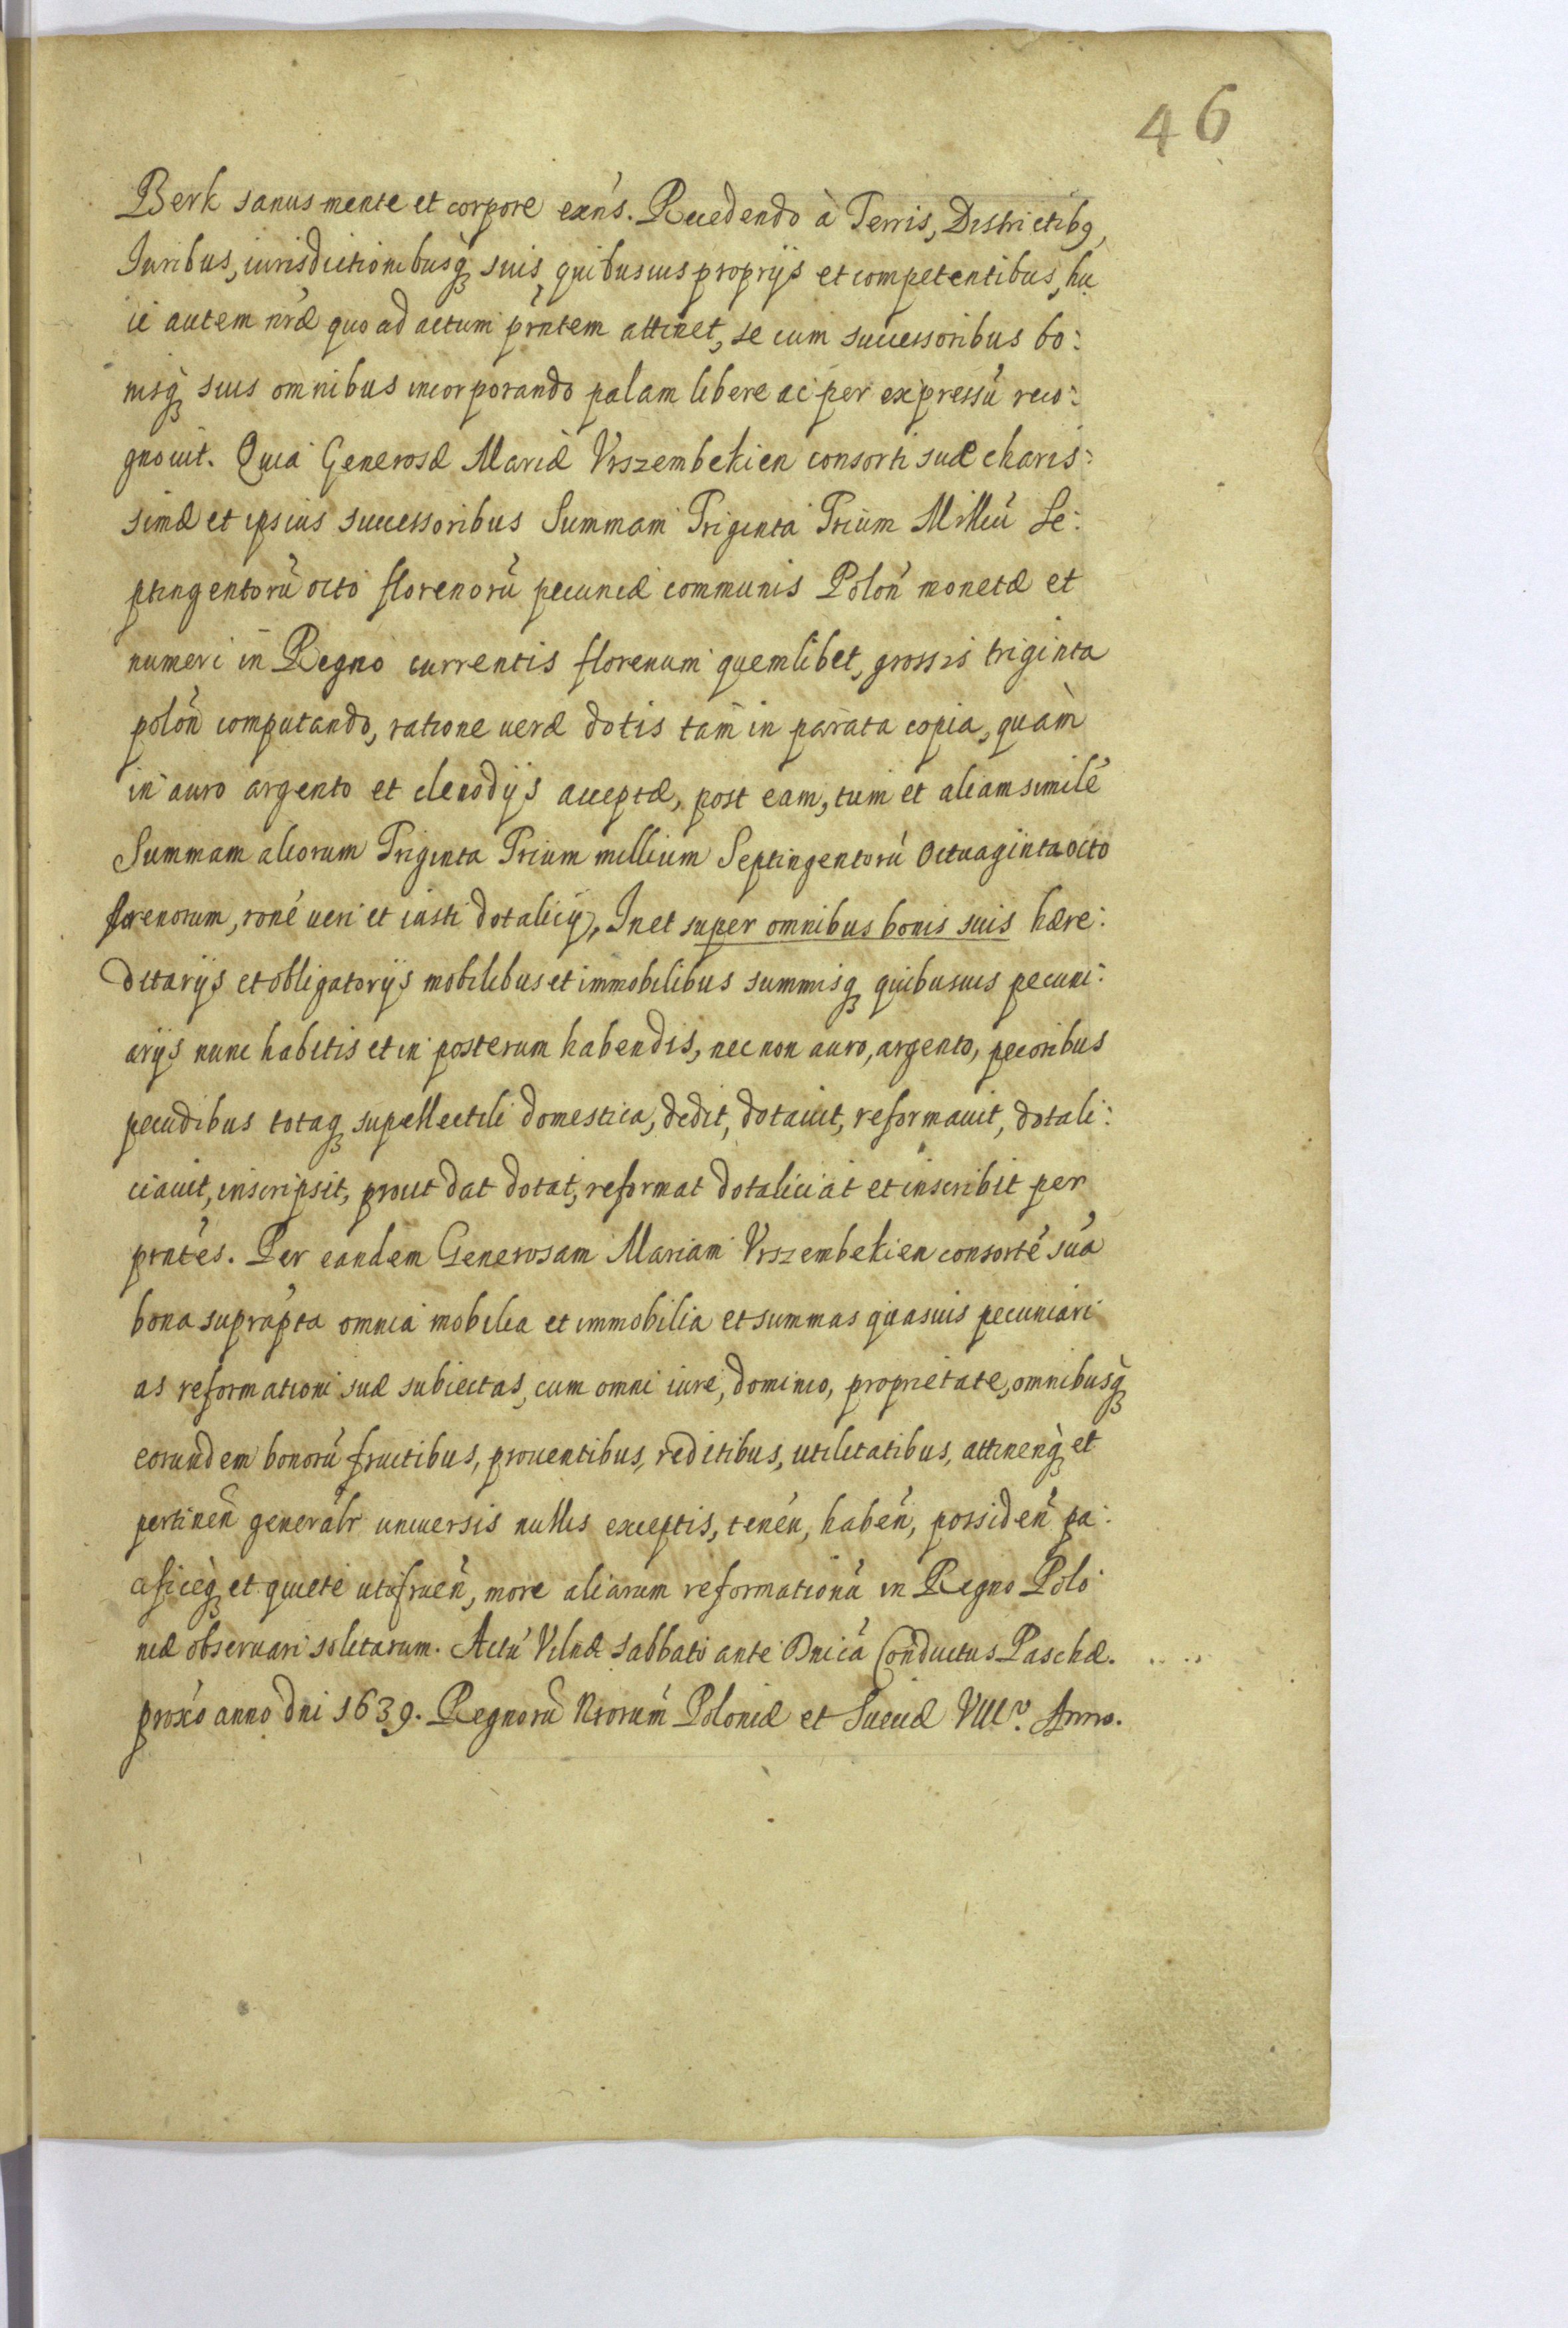 46
Berk sanus mente et corpore exńs. Recedendo à Terris, Districtibꝰ,
Iuribus, iurisdictionibusq̀ꝫ suis quibusuis proprijs et competentibus, hu
ic autem nr̃æ quo ad actum pr̃ntem attinet, se cum successoribus bo:
nisq̀ꝫ suis omnibus incorporando palam libere ac per expressũ reco:
gnouit. Quia Generosæ Mariæ Vrszembekien consorti suæ charis:
simæ et ipsius successoribus Summam Triginta Trium Milliũ Se:
ptingentorũ octo florenorũ pecuniæ communis Poloñ monetæ et
numeri in Regno currentis florenum quemlibet, grossis triginta
poloñ computando, ratione ueræ dotis tam in parata copia, quàm
in auro argento et clenodijs acceptæ, post eam, tum et aliam similẽ
Summam aliorum Triginta Trium millium Septingentorũ Octuaginta octo
florenorum, ronẽ ueri et iusti dotalicij, In et super omnibus bonis suis hære:
ditarijs et obligatorijs mobilibus et immobilibus summisqꝫ quibusuis pecuni:
arijs nunc habitis et in posterum habendis, nec non auro, argento, pecoribus
pecudibus totaqꝫ supellectili domestica, dedit, dotauit, reformauit, dotali:
ciauit, inscripsit, prout dat dotat, reformat dotaliciat et inscribit per
prntẽs. Per eandem Generosam Mariam Vrszembekien consortẽ suã
bona suprap̃ta omnia mobilia et immobilia et summas quasuis pecuniari
as reformationi suæ subiectas, cum omni iure, dominio, proprietate, omnibusq̀ꝫ
eorundem bonorũ fructibus, prouentibus, reditibus, utilitatibus, attineñq̀ꝫ et
pertineñ generalr̃ uniuersis nullis exceptis, teneñ, habeñ, possideñ pa:
cificeq̀ꝫ et quiete utifrueñ, more aliarum reformationũ in Regno Polo
niæ obseruari solitarum. Actũ Vilnæ Sabbato ante Dnicã Conductus Paschæ. ....
proxõ anno dni 1639. Regnorũ Nrorum Poloniæ et Sueciæ VIIº. Anno.